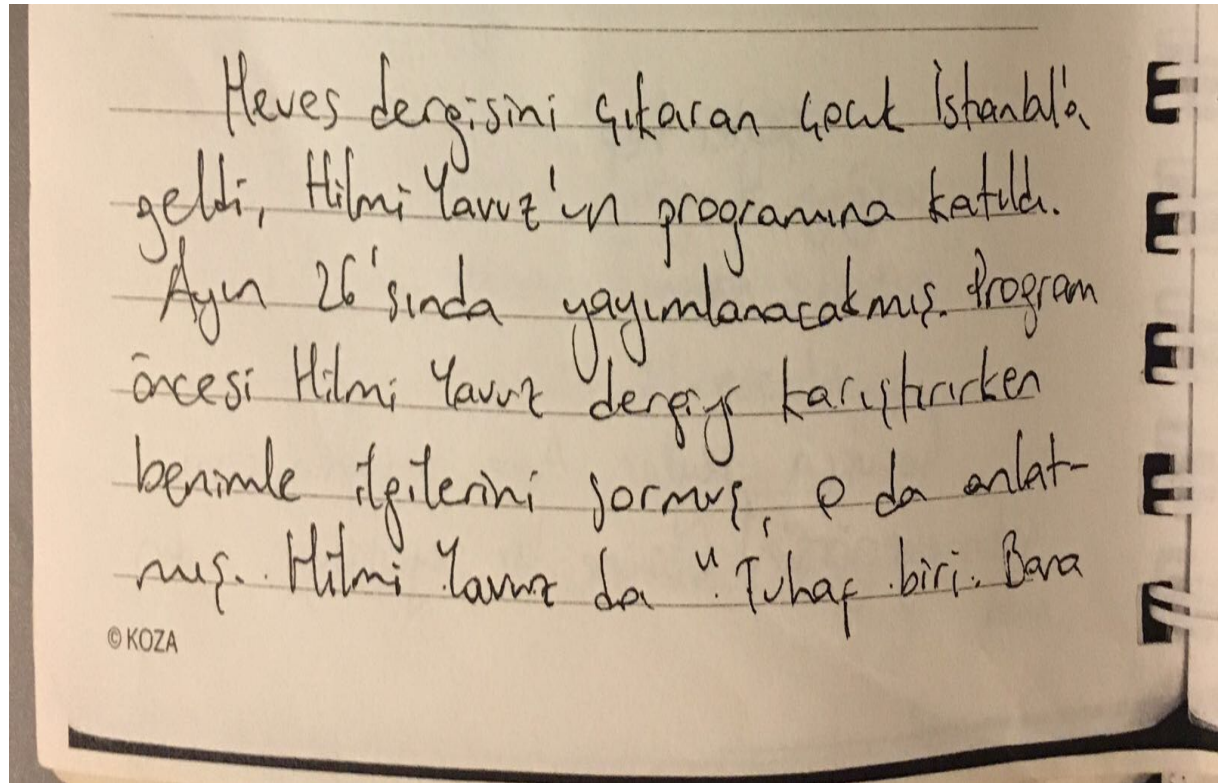 Heves dergisini çıkaran çocuk İstanbul'a
geldi, Hilmi Yavuz'un programına katıldı.
Ayın 26'sında yayımlanacakmış. Program
öncesi Hilmi Yavuz dergiyi karıştırırken
benimle ilgilerini sormuş, o da anlat-
mış. Hilmi Yavuz da "Tuhaf biri. Bana
© KOZA